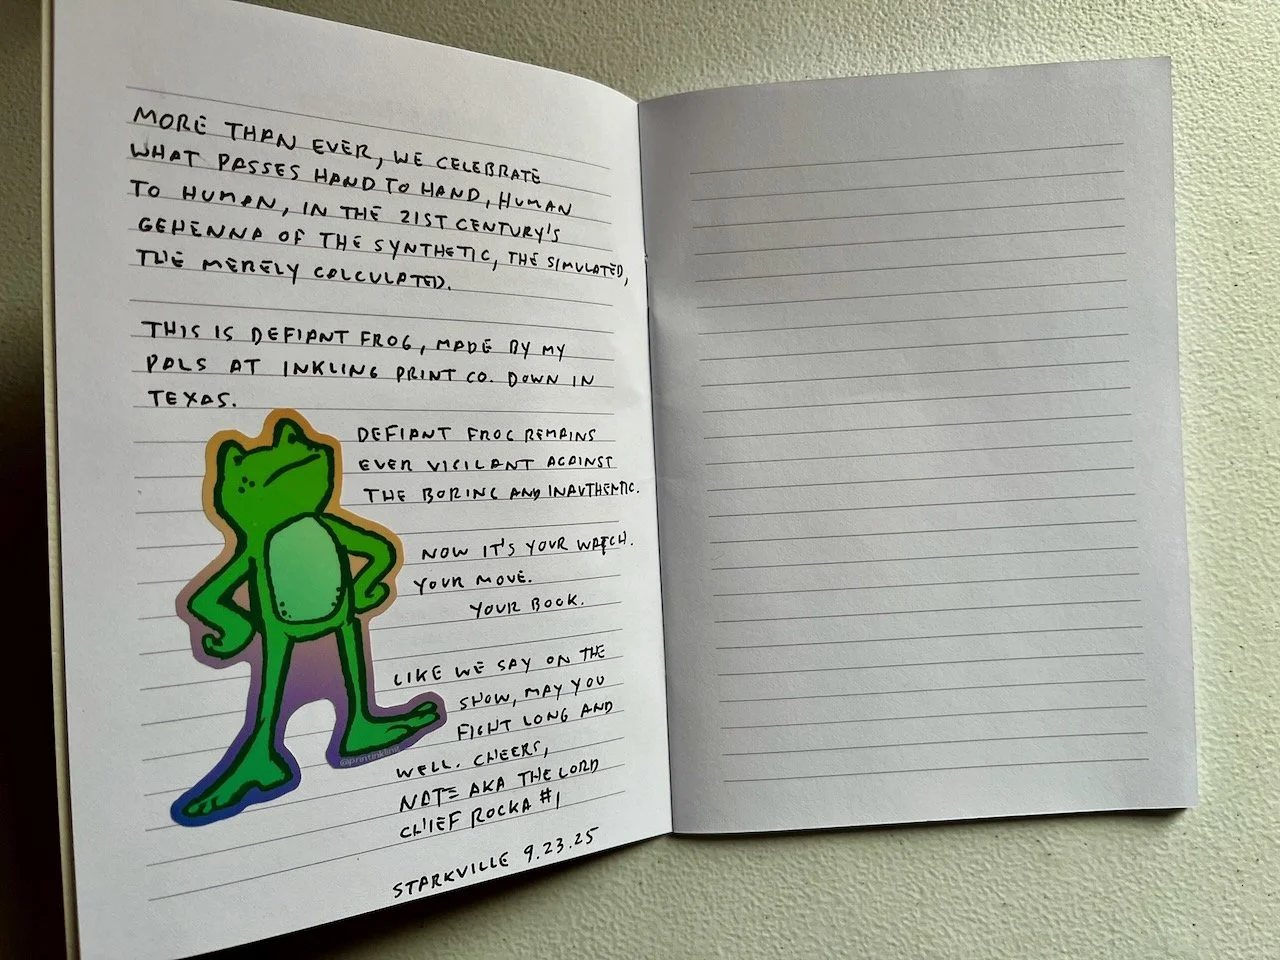 MORE THAN EVER, WE CELEBRATE
WHAT PASSES HAND TO HAND, HUMAN
TO HUMAN, IN THE 21ST CENTURY'S
GEHENNA OF THE SYNTHETIC, THE SIMULATED,
THE MERELY CALCULATED.
THIS IS DEFIANT FROG, MADE BY MY
PALS AT INKLING PRINT CO. DOWN IN
TEXAS.
DEFIANT FROG REMAINS
EVER VIGILANT AGAINST
THE BORING AND INAUTHENTIC.
NOW IT'S YOUR WATCH.
YOUR MOVE.
YOUR BOOK.
LIKE WE SAY ON THE
SHOW, MAY YOU
FIGHT LONG AND
WELL. CHEERS,
NATE AKA THE LORD
CHIEF ROCKA #1
STARKVILLE 9.23.25
@printinkling